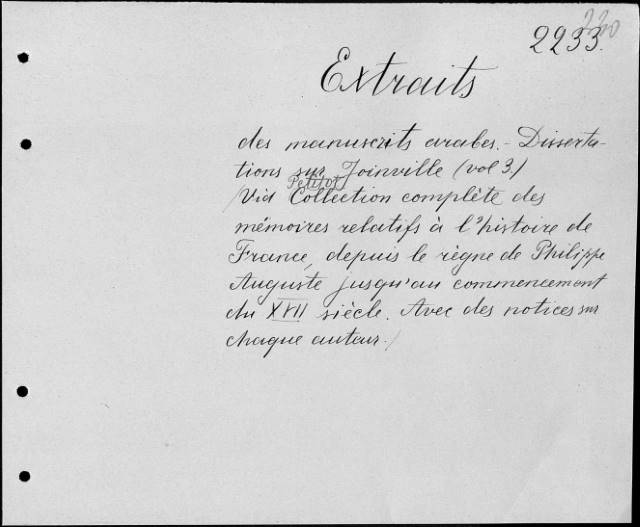 220
2233.
Extraits
des manuscrits arabes. - Disserta-
tions sur Joinville (vol 3.)
Petitot
/Vid Collection complète des
mémoires relatifs à l'histoire de
France, depuis le règne de Philippe
Auguste jusqu'au commencement
du XVII siècle. Avec des notices sur
chaque auteur./